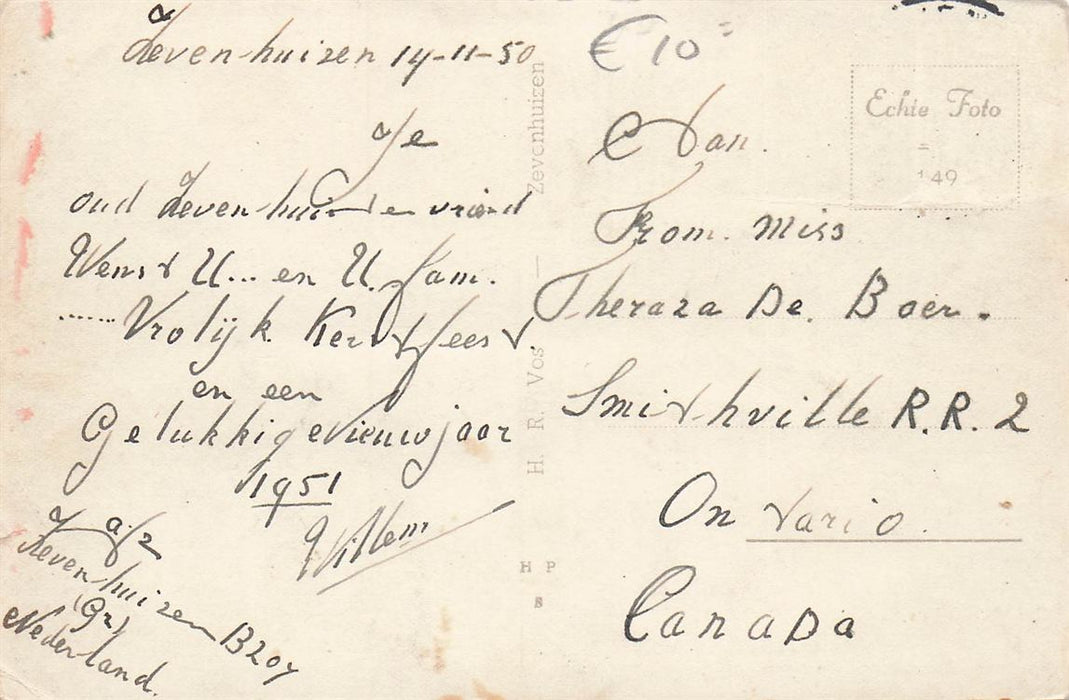 Zevenhuizen 14-11-50
Je
oud Zevenhuizen vriend
Wenst U... en U. fam.
...... Vrolijk Kerstfeest.
en een
Gelukkige Nieuwjaar
1951
Willem
afz
Zevenhuizen B207
(Gr)
Nederland.
Zevenhuizen
H. R. Vos
H P
8
€ 10=
Aan.
From. Miss
Theraza De. Boer.
Smithville R.R. 2
Ontario.
Canada
Echte Foto
=
'49